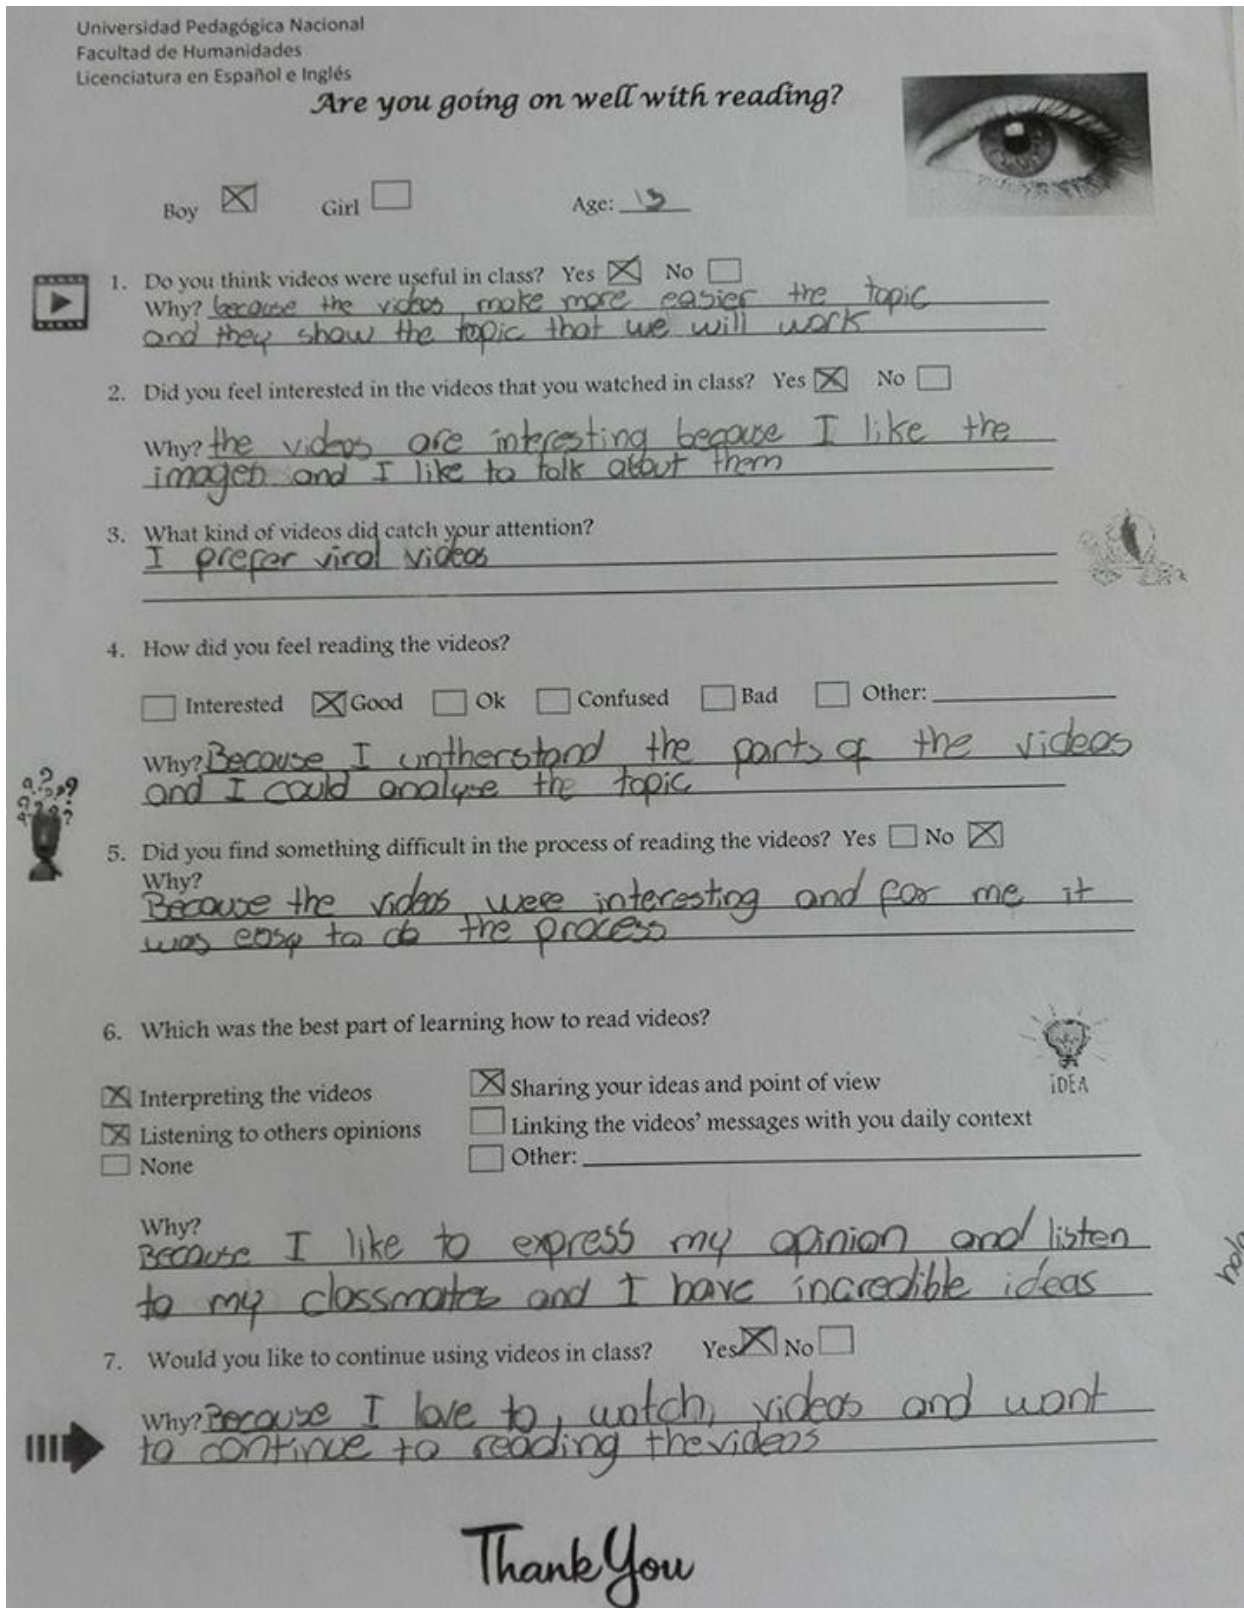 Universidad Pedagógica Nacional
Facultad de Humanidades
Licenciatura en Español e Inglés
Are you going on well with reading?
Boy Girl Age: 13
1. Do you think videos were useful in class? Yes No
Why? because the videos make more easier the topic
and they show the topic that we will work
2. Did you feel interested in the videos that you watched in class? Yes No
Why? the videos are interesting because I like the
imagen and I like to talk about them
3. What kind of videos did catch your attention?
I prefer viral videos
4. How did you feel reading the videos?
Interested Good Ok Confused Bad Other:
Why? Because I untherstand the parts of the videos
and I could analyse the topic
5. Did you find something difficult in the process of reading the videos? Yes No
Why?
Because the videos were interesting and for me it
was easy to do the process
6. Which was the best part of learning how to read videos?
iDEA
Interpreting the videos Sharing your ideas and point of view
Listening to others opinions Linking the videos' messages with you daily context
None Other:
Why?
Because I like to express my opinion and listen
to my classmates and I have incredible ideas
7. Would you like to continue using videos in class? Yes No
Why? Because I love to watch videos and want
to continue to reading the videos
Thank You